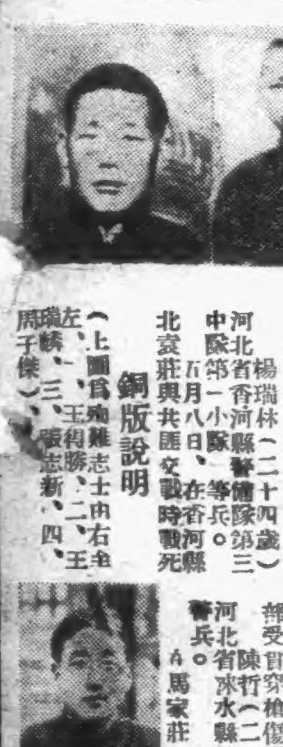 楊瑞林(二十四歲)
河北省香河縣警備隊第三
中隊第一小隊一等兵。
五月八日、在香河縣
北袁莊與共匪交戰時戰死
銅版說明
(上圖爲殉難志士由右至
左、一、王得勝、二、王
瑞麟、三、張志新、四、
周子傑)、
部受貫穿槍傷
陳哲(二
河北省淶水縣
警兵。
A馬家莊